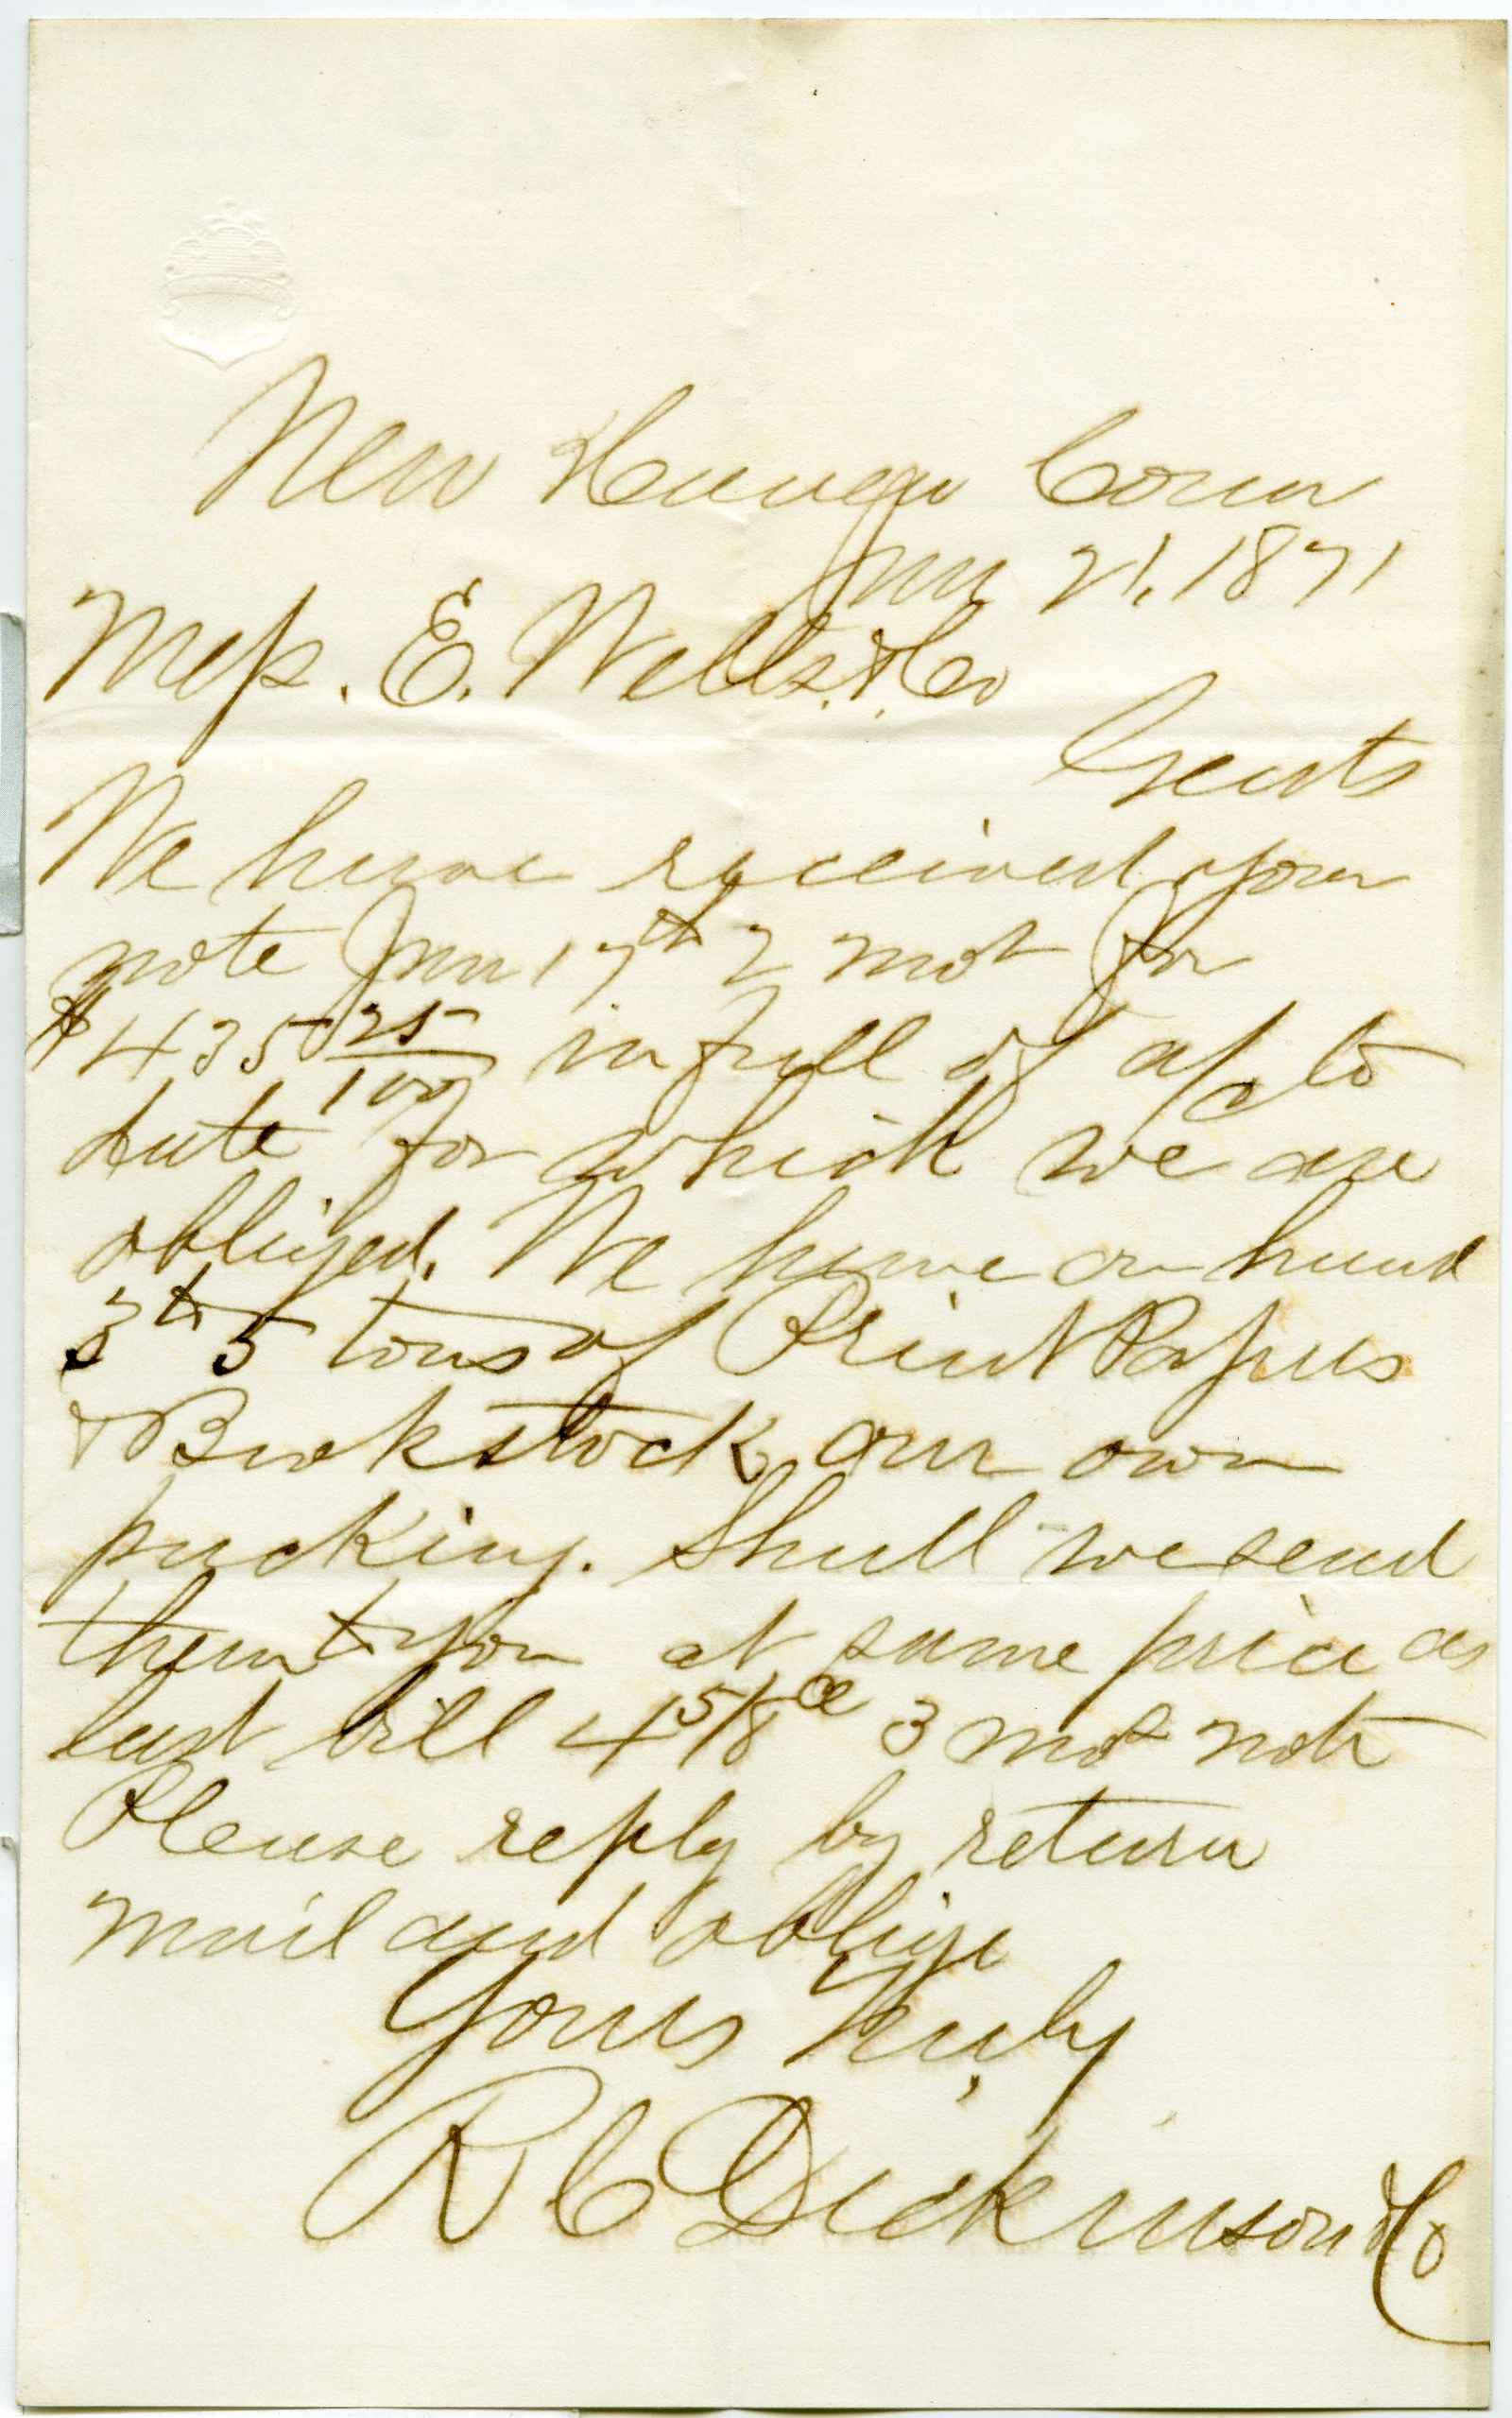 New Haven Conn
Jan 21, 1871
Mess. E. Wells & Co
Gents
We have received your
note Jan 17th 2 mos for
$435 25/100 in full of a/c to
date for which we are
obliged. We have on hand
3 to 5 tons of Print Papers
& Bookstock our own
packing. Shall we send
them to you at same price as
last bill 4 5/8 c 3 mos note
Please reply by return
mail and oblige
Yours Truly
R C Dickinson & Co